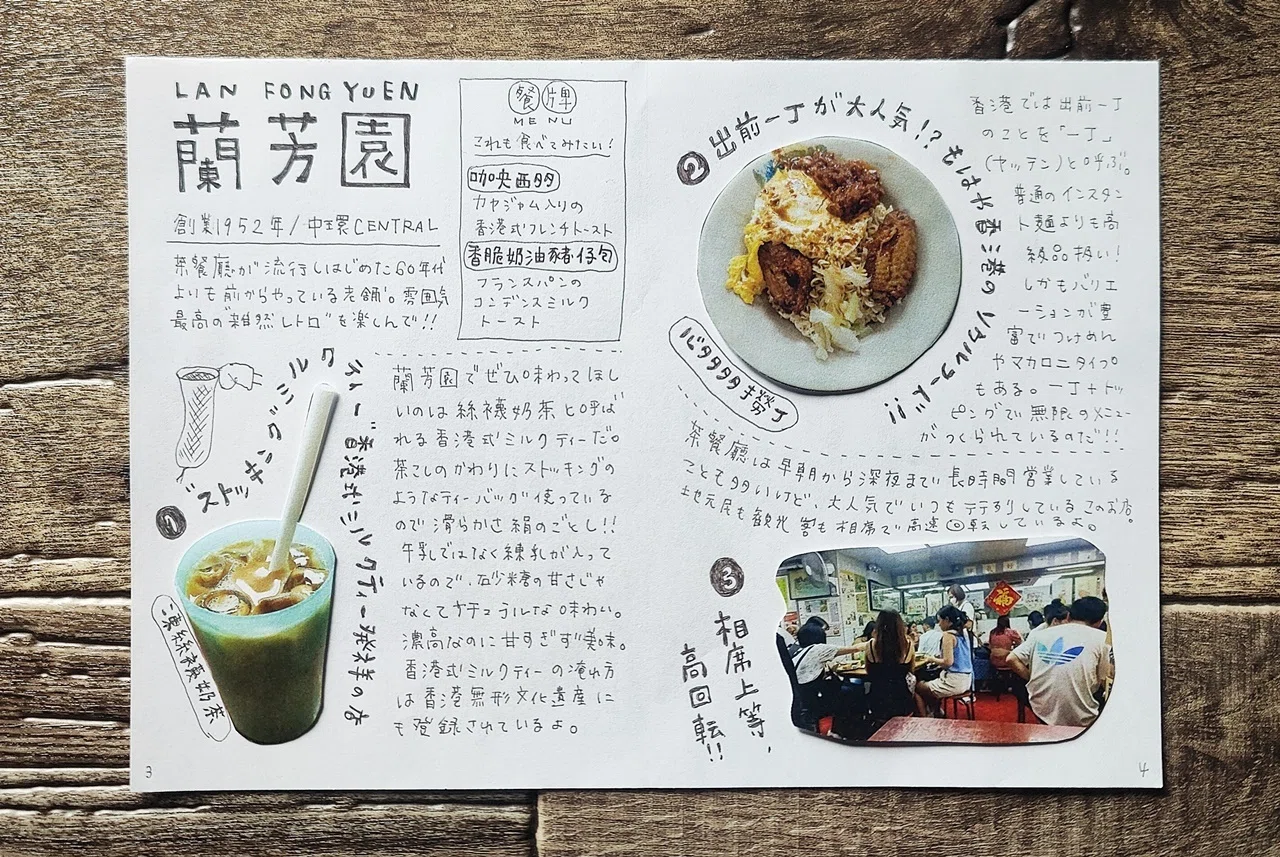 LAN FONG YUEN
蘭芳園
創業1952年/中環CENTRAL
茶餐廳が流行しはじめた60年代
よりも前からやっている老舗。雰囲気
最高の"雑然レトロ"を楽しんで!!
餐牌
MENU
これも食べてみたい!
咖央西多
カヤジャム入りの
香港式フレンチトースト
香脆奶油豬仔包
フランスパンの
コンデンスミルク
トースト
1
"ストッキングミルクティー"香港式ミルクティー発祥の店
凍絲襪奶茶
蘭芳園でぜひ味わってほし
いのは絲襪奶茶と呼ば
れる香港式ミルクティーだ。
茶こしのかわりにストッキングの
ようなティーバッグ使っている
ので滑らかさ絹のごとし!!
牛乳ではなく練乳が入って
いるので、砂糖の甘さじゃ
なくてナチュラルな味わい。
濃高なのに甘すぎず美味。
香港式ミルクティーの淹れ方
は香港無形文化遺産に
も登録されているよ。
3
2 出前一丁が大人気!?もはや香港のソウルフード!!
香港では出前一丁
のことを「一丁」
(ヤッテン)と呼ぶ。
普通のインスタン
ト麺よりも高
級品扱い!
しかもバリエ
ーションが豊
富でつけめん
やマカロニタイプ
もある。一丁+トッ
ピングで無限のメニュー
がつくられているのだ!!
茶餐廳は早朝から深夜まで長時間営業している
ことも多いけど、大人気でいつも行列しているこのお店。
地元民も観光客も相席で高速回転しているよ。
3
相席上等、
高回転!!
4